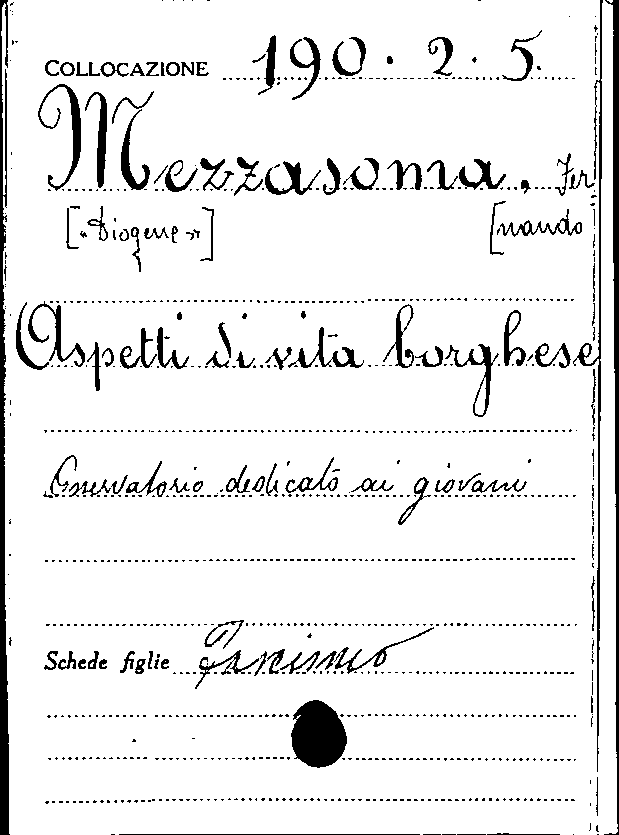 COLLOCAZIONE 190. 2. 5.
Mezzasoma, Fer
[«Diogene»] [nando
Aspetti di vita borghese
Osservatorio dedicato ai giovani
Schede figlie Fascismo